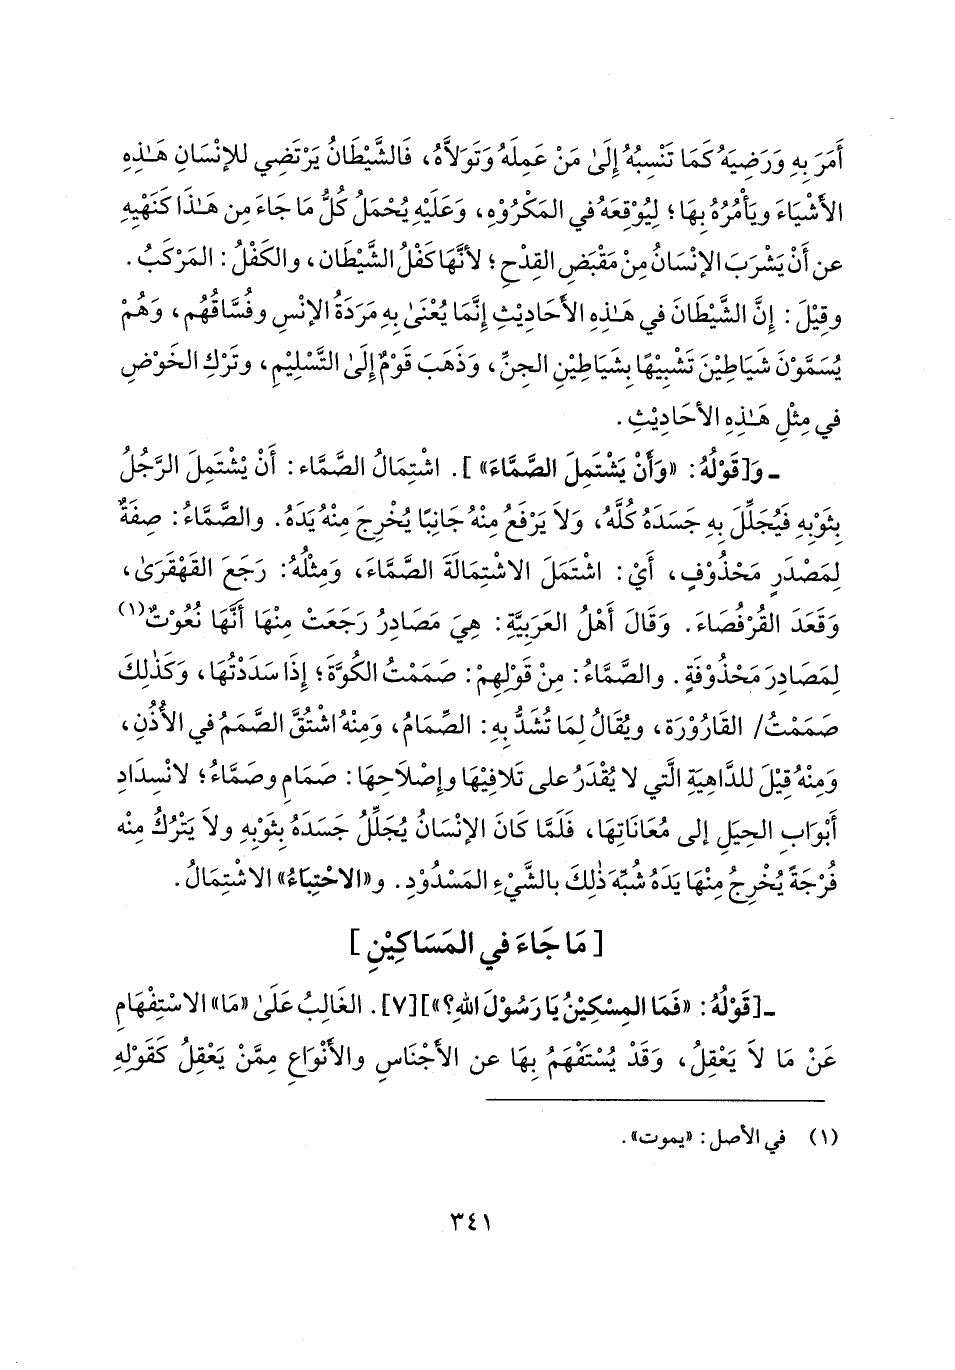 أَمَرَ بِهِ وَرَضِيَهُ كَمَا تَنْسِبُهُ إِلَىٰ مَنْ عَمِلَهُ وَتَوَلاَّهُ، فَالشَّيْطَانُ يَرْتَضِي للإنْسَانِ هَـٰذِهِ
الأَشْيَاءَ ويَأْمُرُهُ بِهَا؛ لِيُوْقِعَهُ في المَكْرُوْهِ، وَعَلَيْهِ يُحْمَلُ كُلُّ مَا جَاءَ مِن هَـٰذَا كَنَهْيِهِ
عن أَنْ يَشْرَبَ الإنْسَانُ مِنْ مَقْبَضِ القِدْحِ؛ لأنَّهَا كَفْلُ الشَّيْطَان، والكَفْلُ: المَرْكَبُ.
وقِيْلَ: إِنَّ الشَّيْطَانَ في هَـٰذِهِ الأَحَادِيْثِ إِنَّمَا يُعْنَىٰ بِهِ مَرَدَةُ الإنْسِ وفُسَّاقُهُم، وَهُمْ
يُسَمَّوْنَ شَيَاطِيْنَ تَشْبِيْهًا بِشَيَاطِيْنِ الجِنِّ، وَذَهَبَ قَوْمٌ إِلَىٰ التَّسْلِيْمِ، وتَرْكِ الخَوْضِ
في مِثْلِ هَـٰذِهِ الأحَادِيْثِ.
ـ وَ[قَوْلُهُ: «وَأَنْ يَشْتَمِلَ الصَّمَّاءَ»]. اشْتِمَالُ الصَّمَّاء: أَنْ يْشْتَمِلَ الرَّجُلُ
بِثَوْبِهِ فَيُجَلِّلَ بِهِ جَسَدَهُ كُلَّهُ، وَلاَ يَرْفَعُ مِنْهُ جَانِبًا يُخْرِجَ مِنْهُ يَدَهُ. والصَّمَّاءُ: صِفَةٌ
لِمَصْدَرٍ مَحْذُوْفٍ، أَيْ: اشْتَمَلَ الاشْتِمَالَةَ الصَّمَّاءَ، وَمِثْلُهُ: رَجَعَ القَهْقَرَىٰ،
وَقَعَدَ القُرْفُصَاءَ. وَقَالَ أَهْلُ العَرَبِيَّةِ: هِيَ مَصَادِرُ رَجَعَتْ مِنْهَا أَنَّهَا نُعُوْتٌ(١)
لِمَصَادِرَ مَحْذُوفَةٍ. والصَّمَّاءُ: مِنْ قَوْلِهِمْ: صَمَمْتُ الكُوَّةَ؛ إِذَا سَدَدْتُهَا، وَكَذٰلِكَ
صَمَمْتُ/ القَارُوْرَة، ويُقَالُ لِمَا تُشَدُّ بِهِ: الصِّمَامُ، وَمِنْهُ اشْتُقَّ الصَّمَمُ في الأُذُنِ،
وَمِنْهُ قِيْلَ للدَّاهِيَةِ الَّتي لا يُقْدَرُ على تَلاَفِيْهَا وإِصْلاَحِهَا: صَمَام وصَمَّاءُ؛ لانْسِدَادِ
أَبْوَابِ الحِيَلِ إلى مُعَانَاتِهَا، فَلَمَّا كَانَ الإنْسَانُ يُجَلِّلُ جَسَدَهُ بِثَوْبِهِ ولاَ يَتْرُكُ مِنْه
فُرْجَةً يُخْرِجُ مِنْهَا يَدَهُ شُبِّهَ ذٰلِكَ بالشَّيْءِ المَسْدُوْدِ. و«الاحْتِبَاءُ» الاشْتِمَالُ.
[مَا جَاءَ في المَسَاكِيْنِ]
ـ [قَوْلُهُ: «فَمَا المِسْكِيْنُ يَا رَسُوْلَ اللهِ؟»][٧]. الغَالِبُ عَلَىٰ «مَا» الاسْتِفْهَامِ
عَنْ مَا لاَ يَعْقِلُ، وَقَدْ يُسْتَفْهَمُ بِهَا عن الأَجْنَاسِ والأَنْوَاعِ مِمَّنْ يَعْقِلُ كَقَوْلِهِ
(١) في الأصل: «يموت».
٣٤١